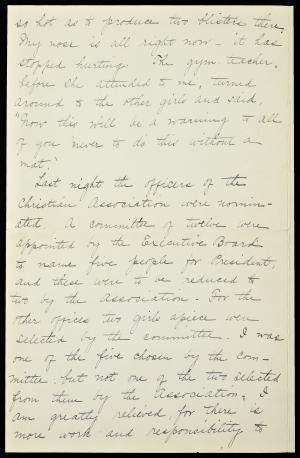 so hot as to produce two blisters there.
My nose is all right now - it has
stopped hurting. The gym teacher,
before she attended to me, turned
around to the other girls and said,
"Now this will be a warning to all
of you never to do this without a
mat."
Last night the officers of the
Christian Association were nomin-
ated. A committee of twelve were
appointed by the Executive Board
to name five people for President,
and these were to be reduced to
two by the Association. For the
other offices two girls apiece were
selected by the committee. I was
one of the five chosen by the com-
mittee but not one of the two selected
from them by the Association. I
am greatly relieved, for there is
more work and responsibility to